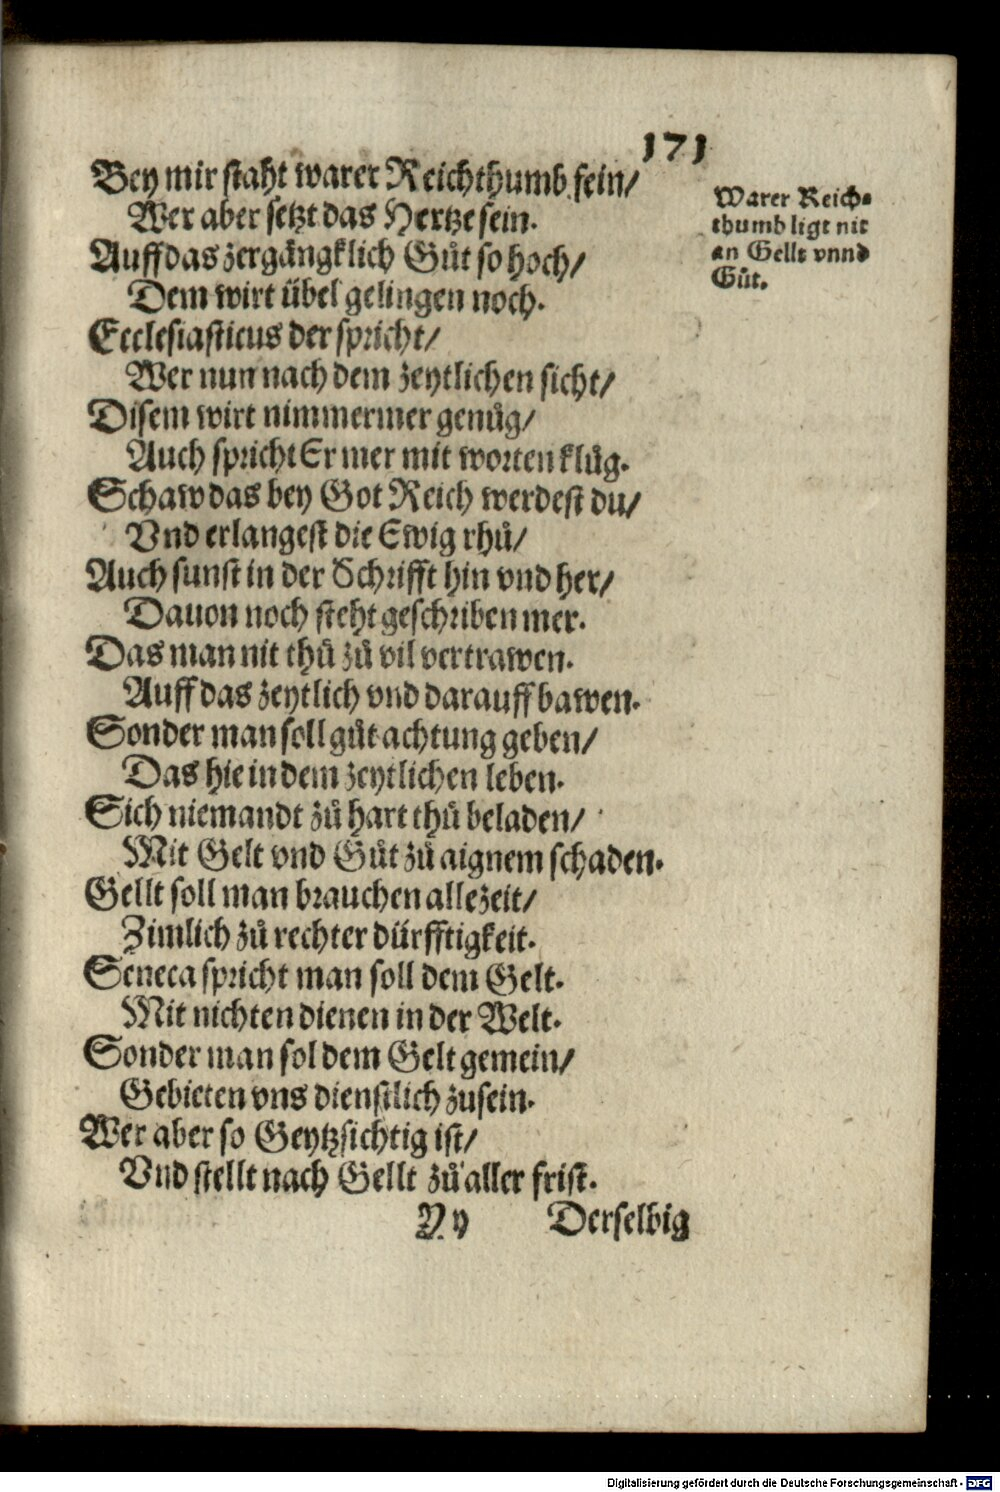 171
Bey mir staht warer Reichthumb fein/
Wer aber setzt das Hertze sein.
Auff das zergängklich Gůt so hoch/
Dem wirt übel gelingen noch.
Ecclesiasticus der spricht/
Wer nun nach dem zeytlichen sicht/
Disem wirt nimmermer genůg/
Auch spricht Er mer mit worten klůg.
Schaw das bey Got Reich werdest du/
Vnd erlangest die Ewig rhů/
Auch sunst in der Schrifft hin vnd her/
Dauon noch steht geschriben mer.
Das man nit thů zů vil vertrawen.
Auff das zeytlich vnd darauff bawen.
Sonder man soll gůt achtung geben/
Das hie in dem zeytlichen leben.
Sich niemandt zů hart thů beladen/
Mit Gelt vnd Gůt zů aignem schaden.
Gellt soll man brauchen allezeit/
Zimlich zů rechter dürfftigkeit.
Seneca spricht man soll dem Gelt.
Mit nichten dienen in der Welt.
Sonder man sol dem Gelt gemein/
Gebieten vns dienstlich zusein.
Wer aber so Geytzsichtig ist/
Vnd stellt nach Gellt zů aller frist.
Yy Derselbig
Warer Reich-
thumb ligt nit
an Gellt vnnd
Gůt.
Digitalisierung gefördert durch die Deutsche Forschungsgemeinschaft - DFG